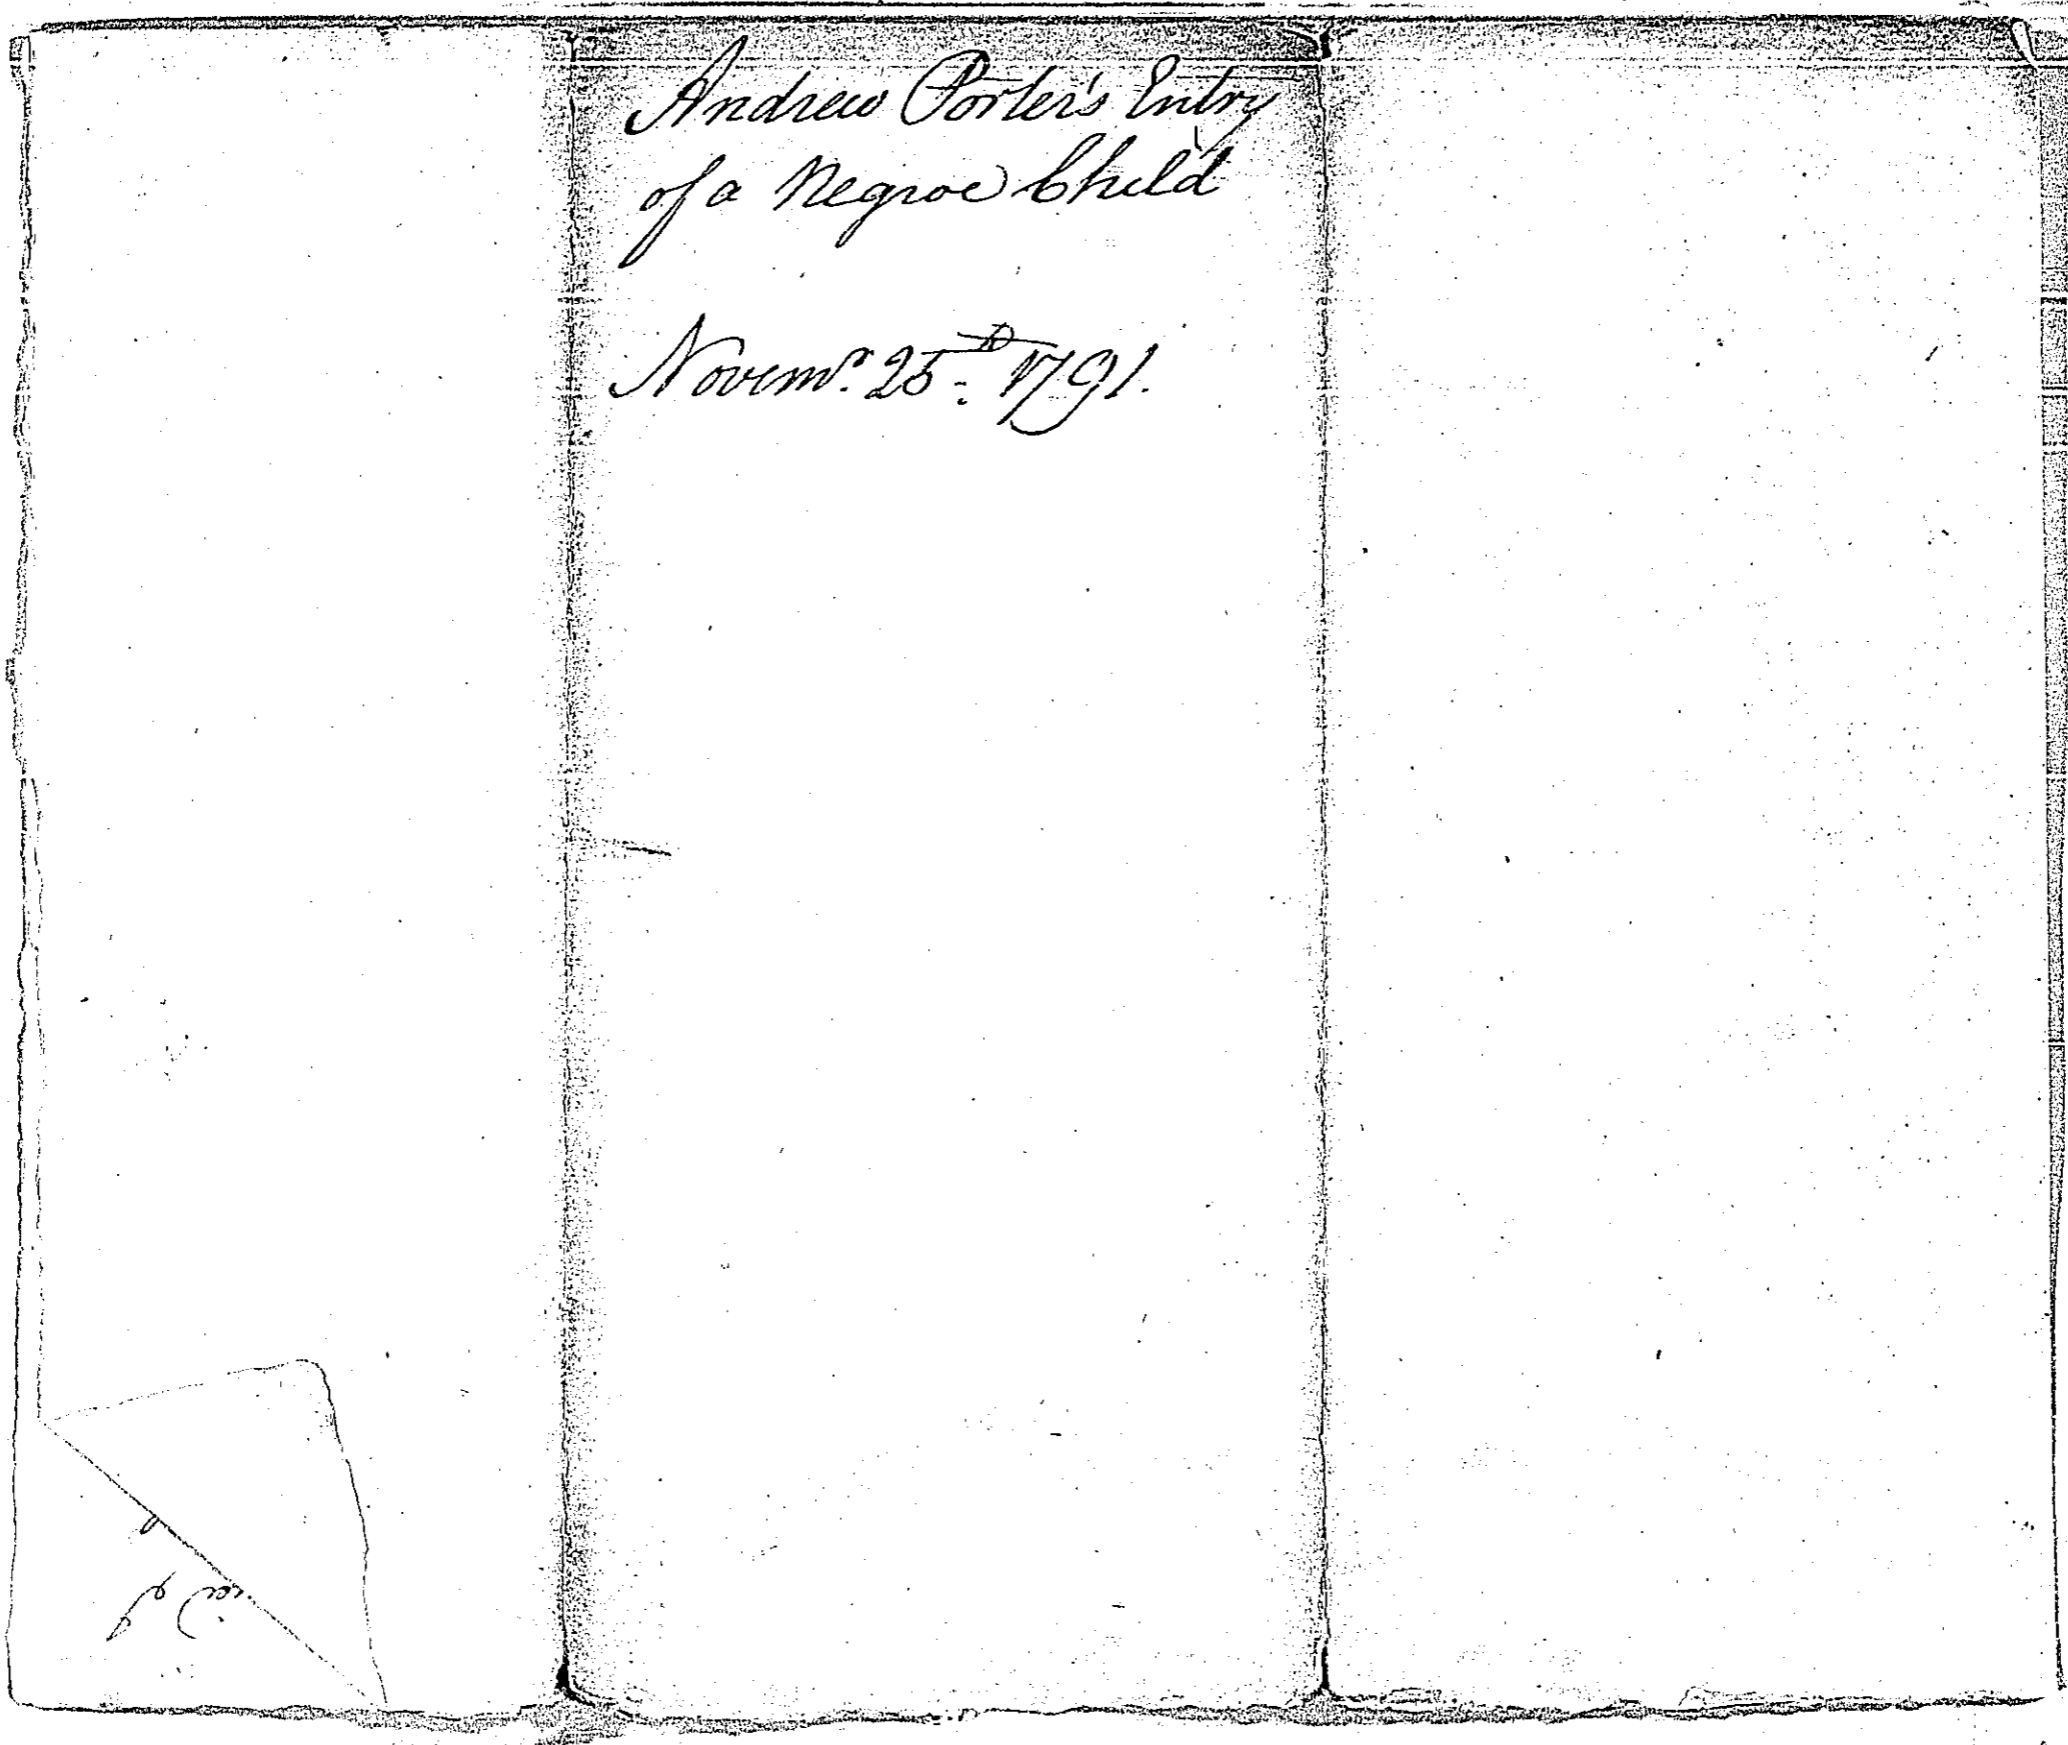 Andrew Porter's Entry
of a Negroe Child
Novemr. 25th 1791.